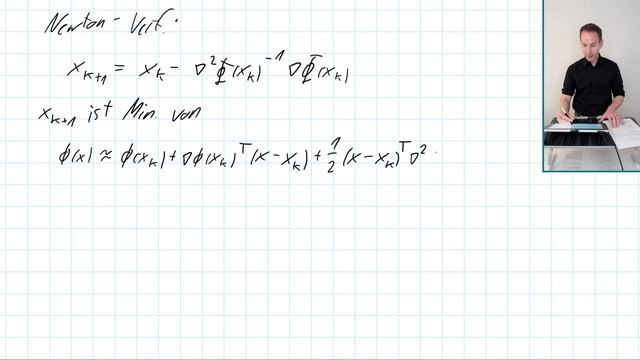 Newton-Verf.
x_{k+1} = x_k - ∇²Φ(x_k)^{-1} ∇Φ(x_k)
x_{k+1} ist Min. von
ϕ(x) ≈ ϕ(x_k) + ∇ϕ(x_k)^T (x - x_k) + 1/2 (x - x_k)^T ∇²